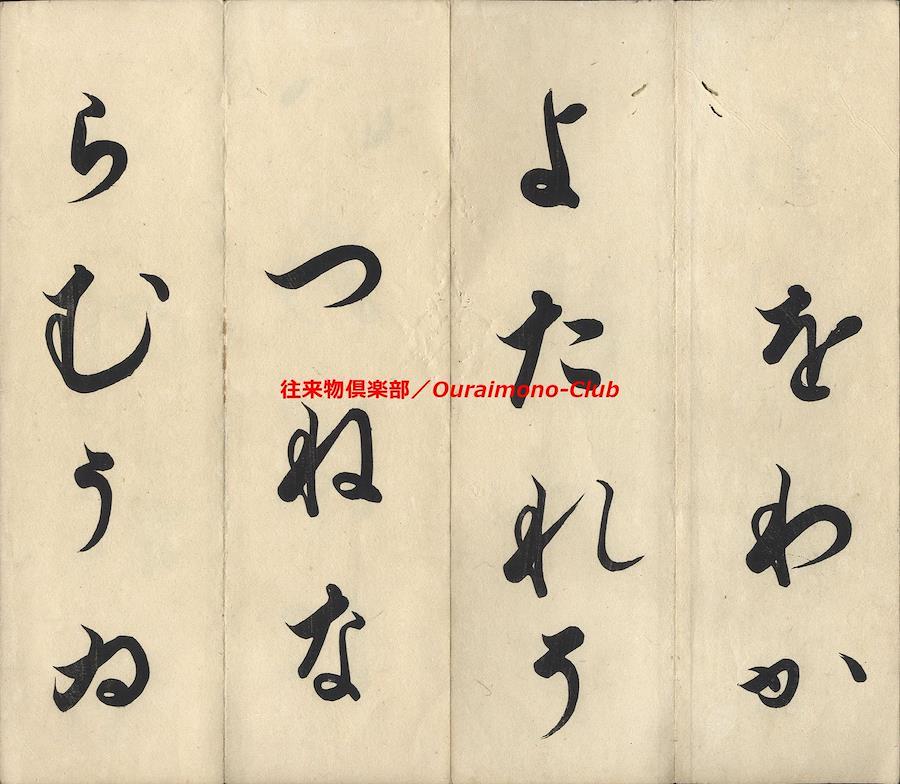 をわか
よたれそ
つねな
らむうゐ
往来物倶楽部／Ouraimono-Club